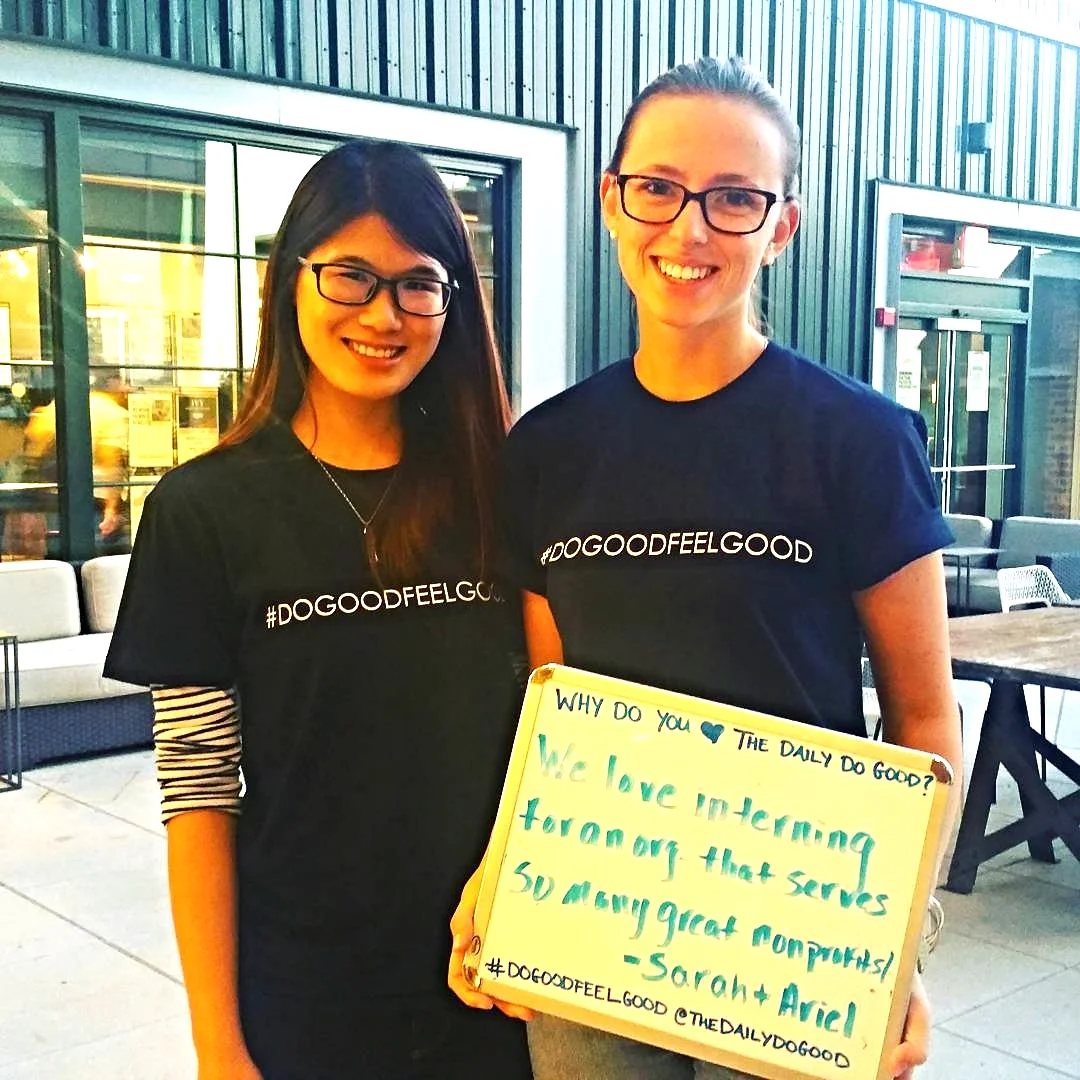 #DOGOODFEELGOO
#DOGOODFEELGOOD
WHY DO YOU ♥ THE DAILY DO GOOD?
We love interning
for an org. that serves
so many great nonprofits!
-Sarah + Ariel
#DOGOODFEELGOOD @THEDAILYDOGOOD
IVY